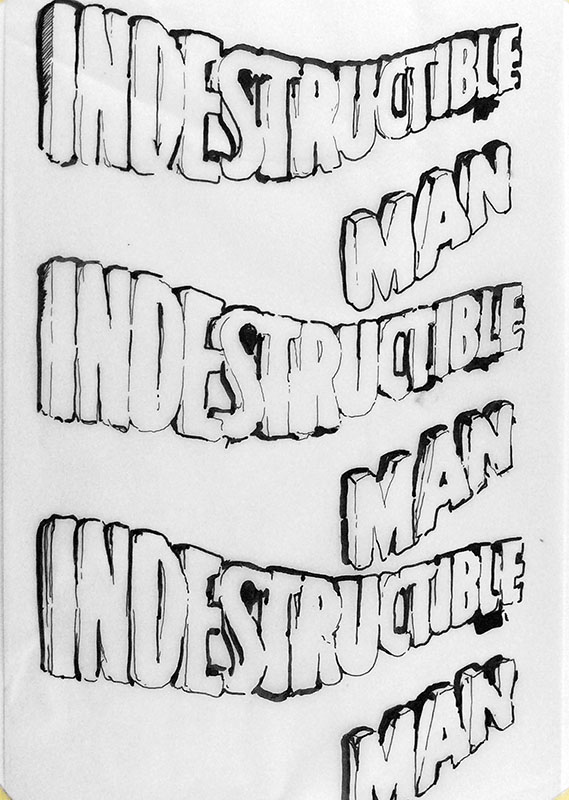 INDESTRUCTIBLE
MAN
INDESTRUCTIBLE
MAN
INDESTRUCTIBLE
MAN